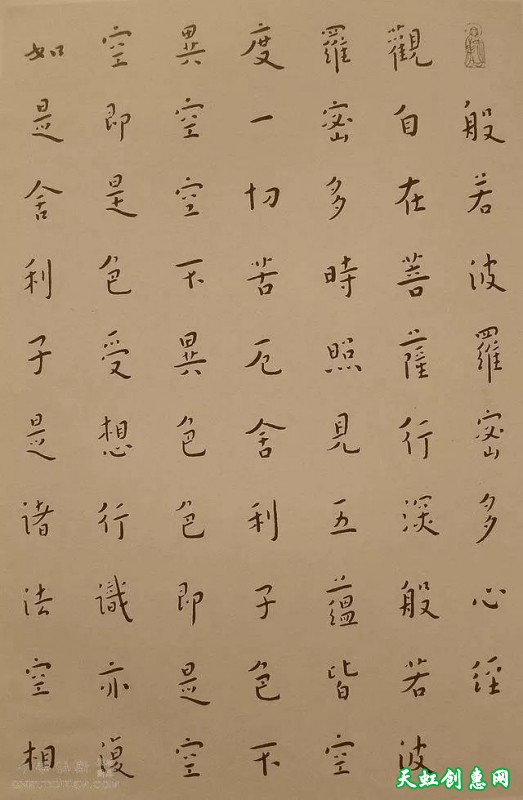 般若波羅密多心経
觀自在菩薩行深般若波
羅密多時照見五蘊皆空
度一切苦厄舍利子色不
異空空不異色色即是空
空即是色受想行識亦復
如是舍利子是諸法空相
天虹创惠网